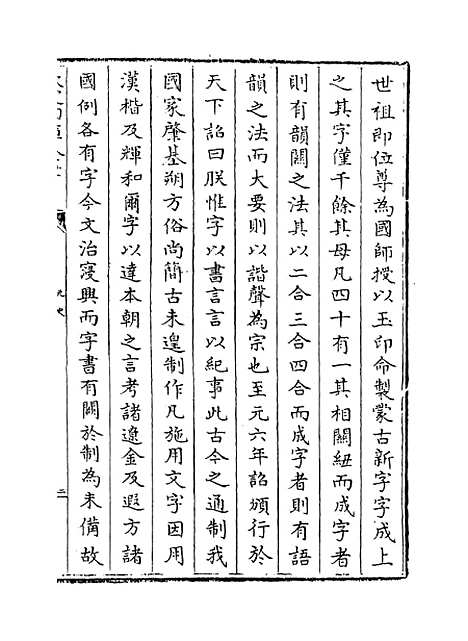 世祖即位尊為國師授以玉印命製蒙古新字字成上
之其字僅千餘其母凡四十有一其相關紐而成字者
則有韻關之法其以二合三合四合而成字者則有語
韻之法而大要則以諧聲為宗也至元六年詔頒行於
天下詔曰朕惟字以書言言以紀事此古今之通制我
國家肇基朔方俗尚簡古未遑制作凡施用文字因用
漢楷及輝和爾字以達本朝之言考諸遼金及遐方諸
國例各有字今文治寖興而字書有闕於制為未備故
元史
二